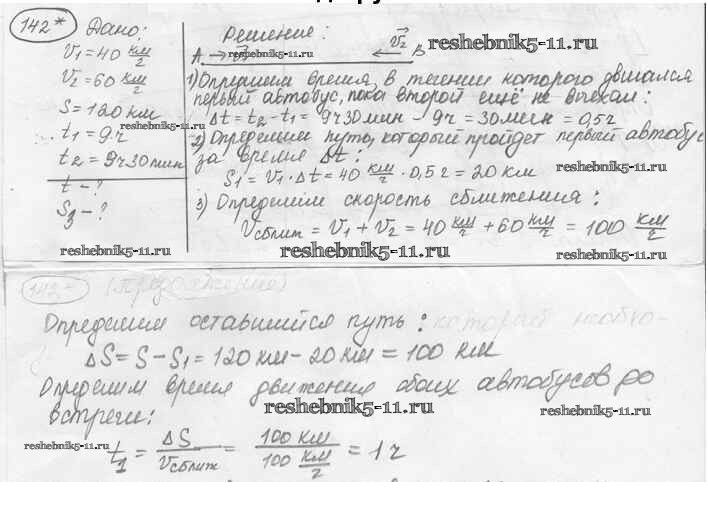 142*
Дано:
V₁=40 км/ч
V₂=60 км/ч
S=120 км
t₁=9ч
t₂=9ч30мин
t-?
S₃-?
Решение:
A → V⃗₁
← V⃗₂ B
reshebnik5-11.ru
reshebnik5-11.ru
reshebnik5-11.ru
1) Определим время, в течении которого двигался
первый автобус, пока второй ещё не выехал:
Δt=t₂-t₁= 9ч30мин - 9ч = 30мин = 0,5ч
2) Определим путь, который пройдет первый автобус
за время Δt:
S₁=V₁·Δt=40 км/ч · 0,5ч = 20 км
reshebnik5-11.ru
3) Определим скорость сближения:
Vсближ = V₁+V₂=40 км/ч +60 км/ч = 100 км/ч
reshebnik5-11.ru
reshebnik5-11.ru
reshebnik5-11.ru
142* (продолжение)
Определим оставшийся путь: который необхо-
ΔS=S-S₁=120 км-20 км=100 км
Определим время движения обоих автобусов до
встречи:
reshebnik5-11.ru
reshebnik5-11.ru
reshebnik5-11.ru
t₁ = ΔS/Vсближ = 100 км/100 км/ч = 1ч